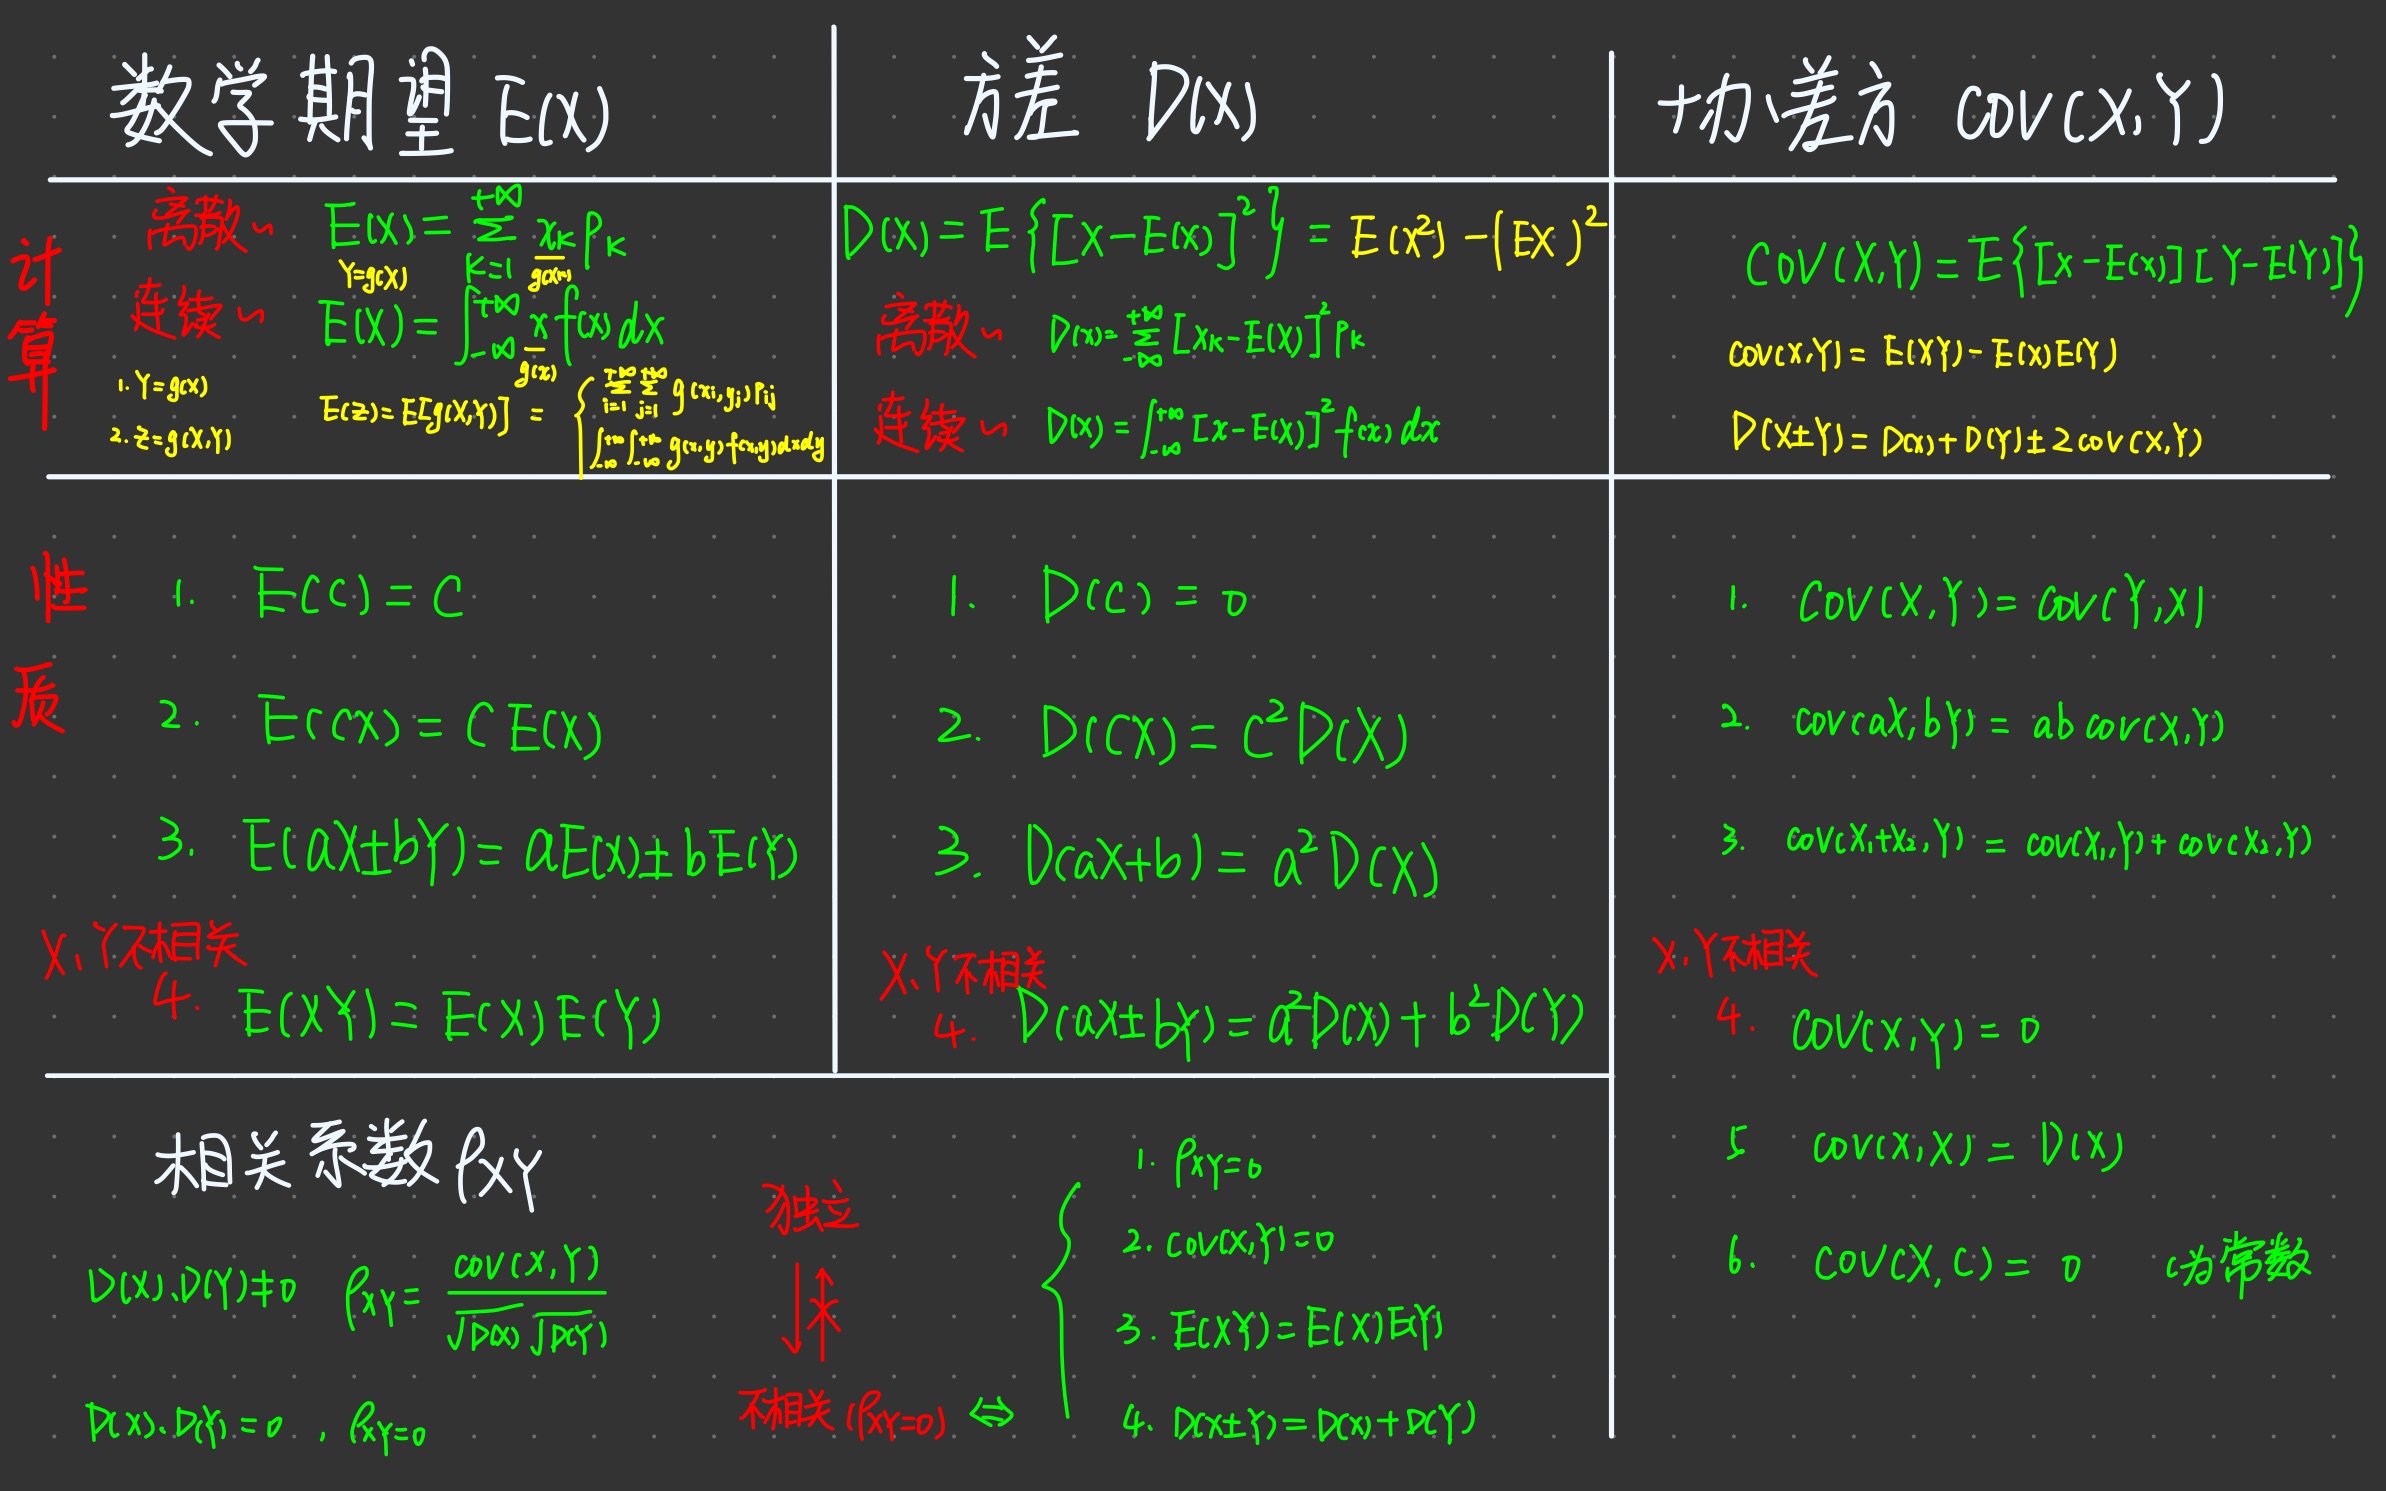 数学期望 E(X)
方差 D(X)
协差方 COV(X,Y)
计算
离散~ E(X)=∑_{K=1}^{+∞} x_K P_K
Y=g(X) g(xk)
连续~ E(X)=∫_{-∞}^{+∞} x f(x) dx
g(x)
1. Y=g(X)
2. Z=g(X,Y)
E(Z)=E[g(X,Y)] = { ∑_{i=1}^{+∞} ∑_{j=1}^{+∞} g(xi,yj)Pij
∫_{-∞}^{+∞} ∫_{-∞}^{+∞} g(x,y)f(x,y)dxdy
D(X)=E{[X-E(X)]²}=E(X²)-(EX)²
离散~ D(X)=∑_{-∞}^{+∞} [X_K-E(X)]² P_K
连续~ D(X)=∫_{-∞}^{+∞} [X-E(X)]² f(x) dx
COV(X,Y)=E{[X-E(X)][Y-E(Y)]}
COV(X,Y)=E(XY)-E(X)E(Y)
D(X±Y)=D(X)+D(Y)±2COV(X,Y)
性质
1. E(C)=C
2. E(CX)=CE(X)
3. E(aX±bY)=aE(X)±bE(Y)
X、Y不相关
4. E(XY)=E(X)E(Y)
1. D(C)=0
2. D(CX)=C²D(X)
3. D(aX+b)=a²D(X)
X、Y不相关
4. D(aX±bY)=a²D(X)+b²D(Y)
1. COV(X,Y)=COV(Y,X)
2. COV(aX,bY)=abCOV(X,Y)
3. COV(X₁+X₂,Y)=COV(X₁,Y)+COV(X₂,Y)
X、Y不相关
4. COV(X,Y)=0
5 COV(X,X)=D(X)
6. COV(X,C)=0 C为常数
相关系数 ρXY
D(X)、D(Y)≠0 ρXY=COV(X,Y)/√D(X)√D(Y)
D(X)、D(Y)=0,ρXY=0
独立
不相关(ρXY=0) ⇔
1. ρXY=0
2. COV(X,Y)=0
3. E(XY)=E(X)E(Y)
4. D(X±Y)=D(X)+D(Y)